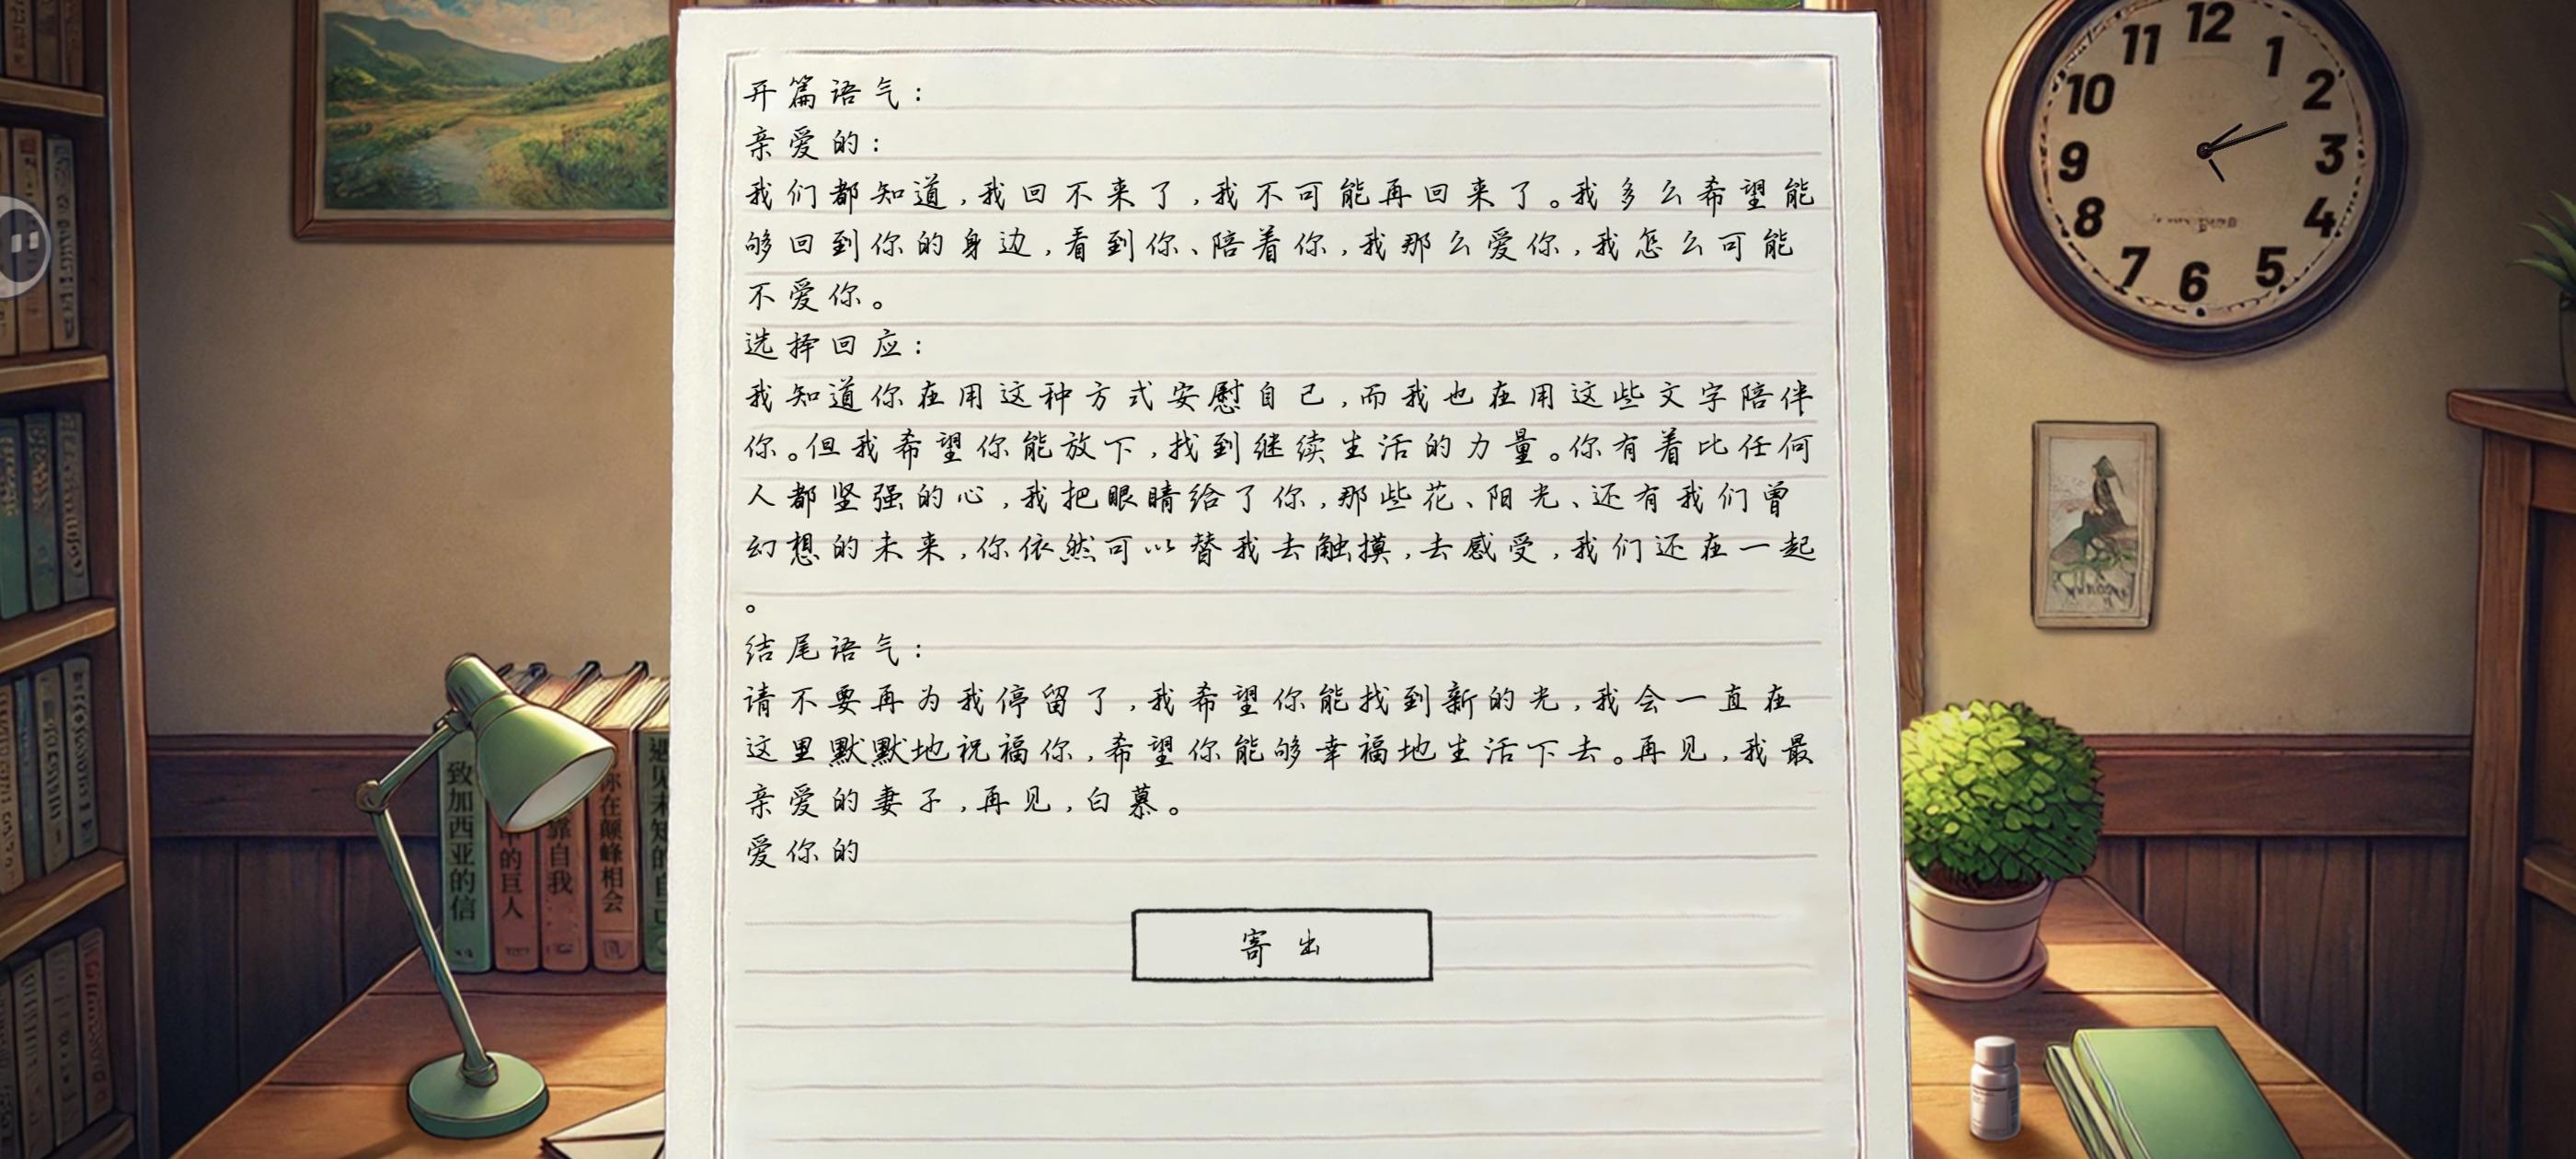 开篇语气：
亲爱的：
我们都知道，我回不来了，我不可能再回来了。我多么希望能
够回到你的身边，看到你、陪着你，我那么爱你，我怎么可能
不爱你。
选择回应：
我知道你在用这种方式安慰自己，而我也在用这些文字陪伴
你。但我希望你能放下，找到继续生活的力量。你有着比任何
人都坚强的心，我把眼睛给了你，那些花、阳光、还有我们曾
幻想的未来，你依然可以替我去触摸，去感受，我们还在一起
。
结尾语气：
请不要再为我停留了，我希望你能找到新的光，我会一直在
这里默默地祝福你，希望你能够幸福地生活下去。再见，我最
亲爱的妻子，再见，白慕。
爱你的
寄出
12
1
2
3
4
5
6
7
8
9
10
11
致加西亚的信
中的巨人
靠自我
你在颠峰相会
遇见未知的自己